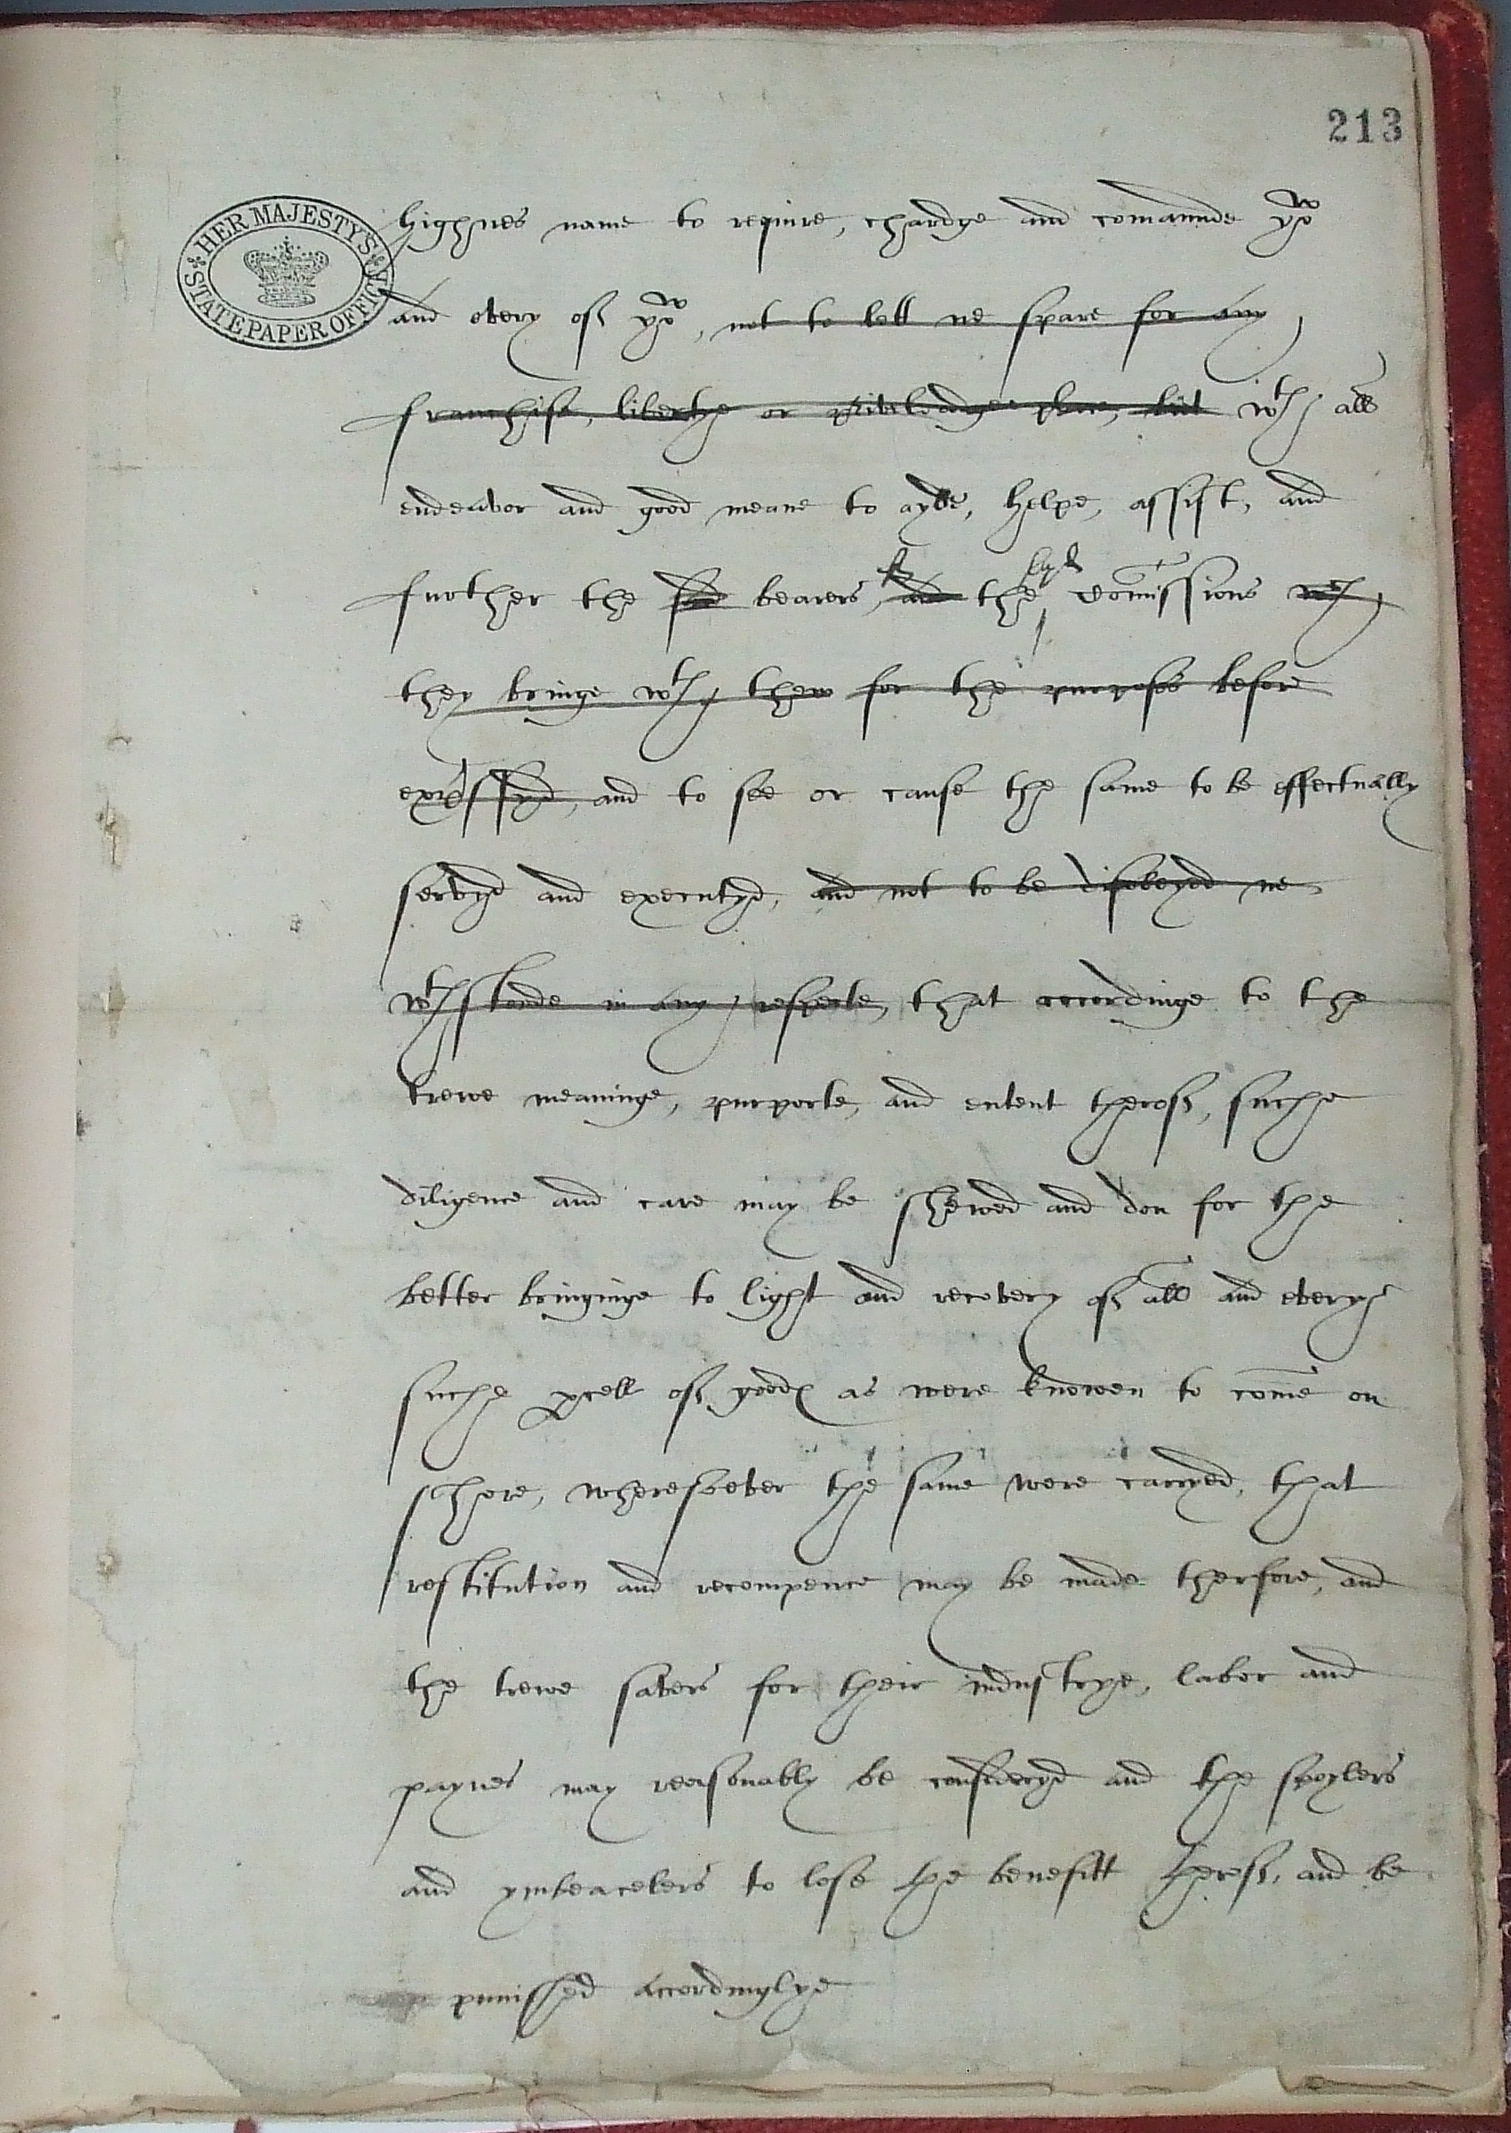 213
HER MAJESTY'S STATE PAPER OFFICE
highnes name to require, chardge and comaunde yow
and every of yow, not to lett ne spare for any
franchise, libertye or priviledge place, but wth all
endeavor and good meane to ayde, helpe, assist, and
further the said bearers, and the Comissions wch
they bringe wth them for the purposes before
expressyd, and to see or cause the same to be effectually
servyd and executyd, and not to be disobeyed ne
wthstonde in any respecte, that accordinge to the
trewe meaninge, purporte, and entent therof, suche
diligence and care may be shewed and don for the
better bringinge to light and recovery of all and every
suche pcell of goods as were knowen to come on
shore, wheresoever the same were carryed, that
restitution and recompence may be made therfore, and
the trewe savers for their industrye, labor and
paynes may reasonably be consideryd and the spoylers
and ymbeacelers to lose the benefitt therof, and be
punisshed accordinglye